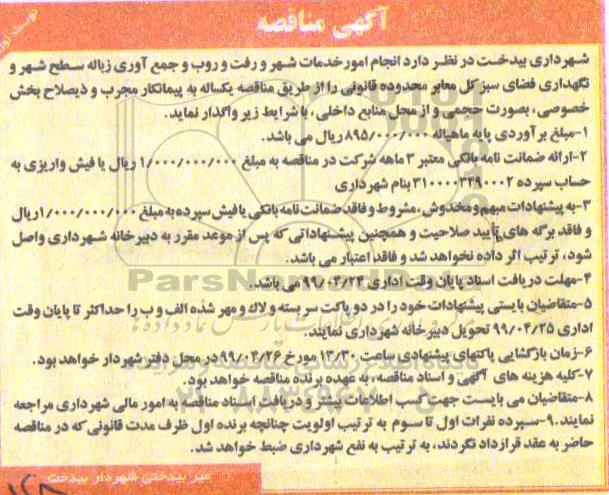 آگهی مناقصه
نوبت اول
شهرداری بیدخت در نظر دارد انجام امور خدمات شهر و رفت و روب و جمع آوری زباله سطح شهر و
نگهداری فضای سبز کل معابر محدوده قانونی را از طریق مناقصه یکساله به پیمانکار مجرب و ذیصلاح بخش
خصوصی، بصورت حجمی و از محل منابع داخلی، با شرایط زیر واگذار نماید.
۱-مبلغ برآوردی پایه ماهیانه ۸۹۵/۰۰۰/۰۰۰ ریال می باشد.
۲-ارائه ضمانت نامه بانکی معتبر ۳ ماهه شرکت در مناقصه به مبلغ ۱/۰۰۰/۰۰۰/۰۰۰ ریال یا فیش واریزی به
حساب سپرده ۳۱۰۰۰۰۳۴۹۰۰۰۲ بنام شهرداری
۳-به پیشنهادات مبهم و مخدوش، مشروط و فاقد ضمانت نامه بانکی یا فیش سپرده به مبلغ ۱/۰۰۰/۰۰۰/۰۰۰ ریال
و فاقد برگه های تأیید صلاحیت و همچنین پیشنهاداتی که پس از موعد مقرر به دبیرخانه شهرداری واصل
شود، ترتیب اثر داده نخواهد شد و فاقد اعتبار می باشد.
۴-مهلت دریافت اسناد پایان وقت اداری ۹۹/۰۴/۲۴ می باشد.
۵-متقاضیان بایستی پیشنهادات خود را در دو پاکت سر بسته و لاک و مهر شده الف و ب را حداکثر تا پایان وقت
اداری ۹۹/۰۴/۲۵ تحویل دبیرخانه شهرداری نمایند.
۶-زمان بازگشایی پاکتهای پیشنهادی ساعت ۱۳/۳۰ مورخ ۹۹/۰۴/۲۶ در محل دفتر شهردار خواهد بود.
۷-کلیه هزینه های آگهی و اسناد مناقصه، به عهده برنده مناقصه خواهد بود.
۸-متقاضیان می بایست جهت کسب اطلاعات بیشتر و دریافت اسناد مناقصه به امور مالی شهرداری مراجعه
نمایند.۹-سپرده نفرات اول تا سوم به ترتیب اولویت چنانچه برنده اول ظرف مدت قانونی که در مناقصه
حاضر به عقد قرارداد نگردند، به ترتیب به نفع شهرداری ضبط خواهد شد.
میر بیدختی شهردار بیدخت
ParsNamadData